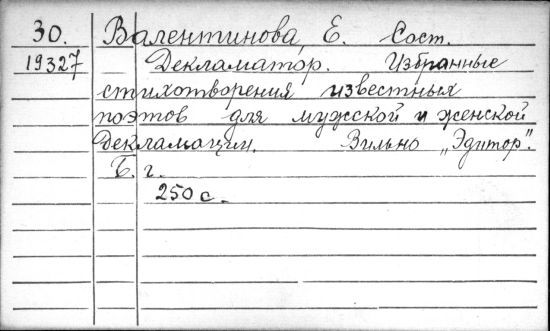 30. Валентинова, Е. Сост.
19327 Декламатор. Избранные
стихотворения известных
поэтов для мужской и женской
декламации. Вильно „Эдитор".
Б. г.
250 с.